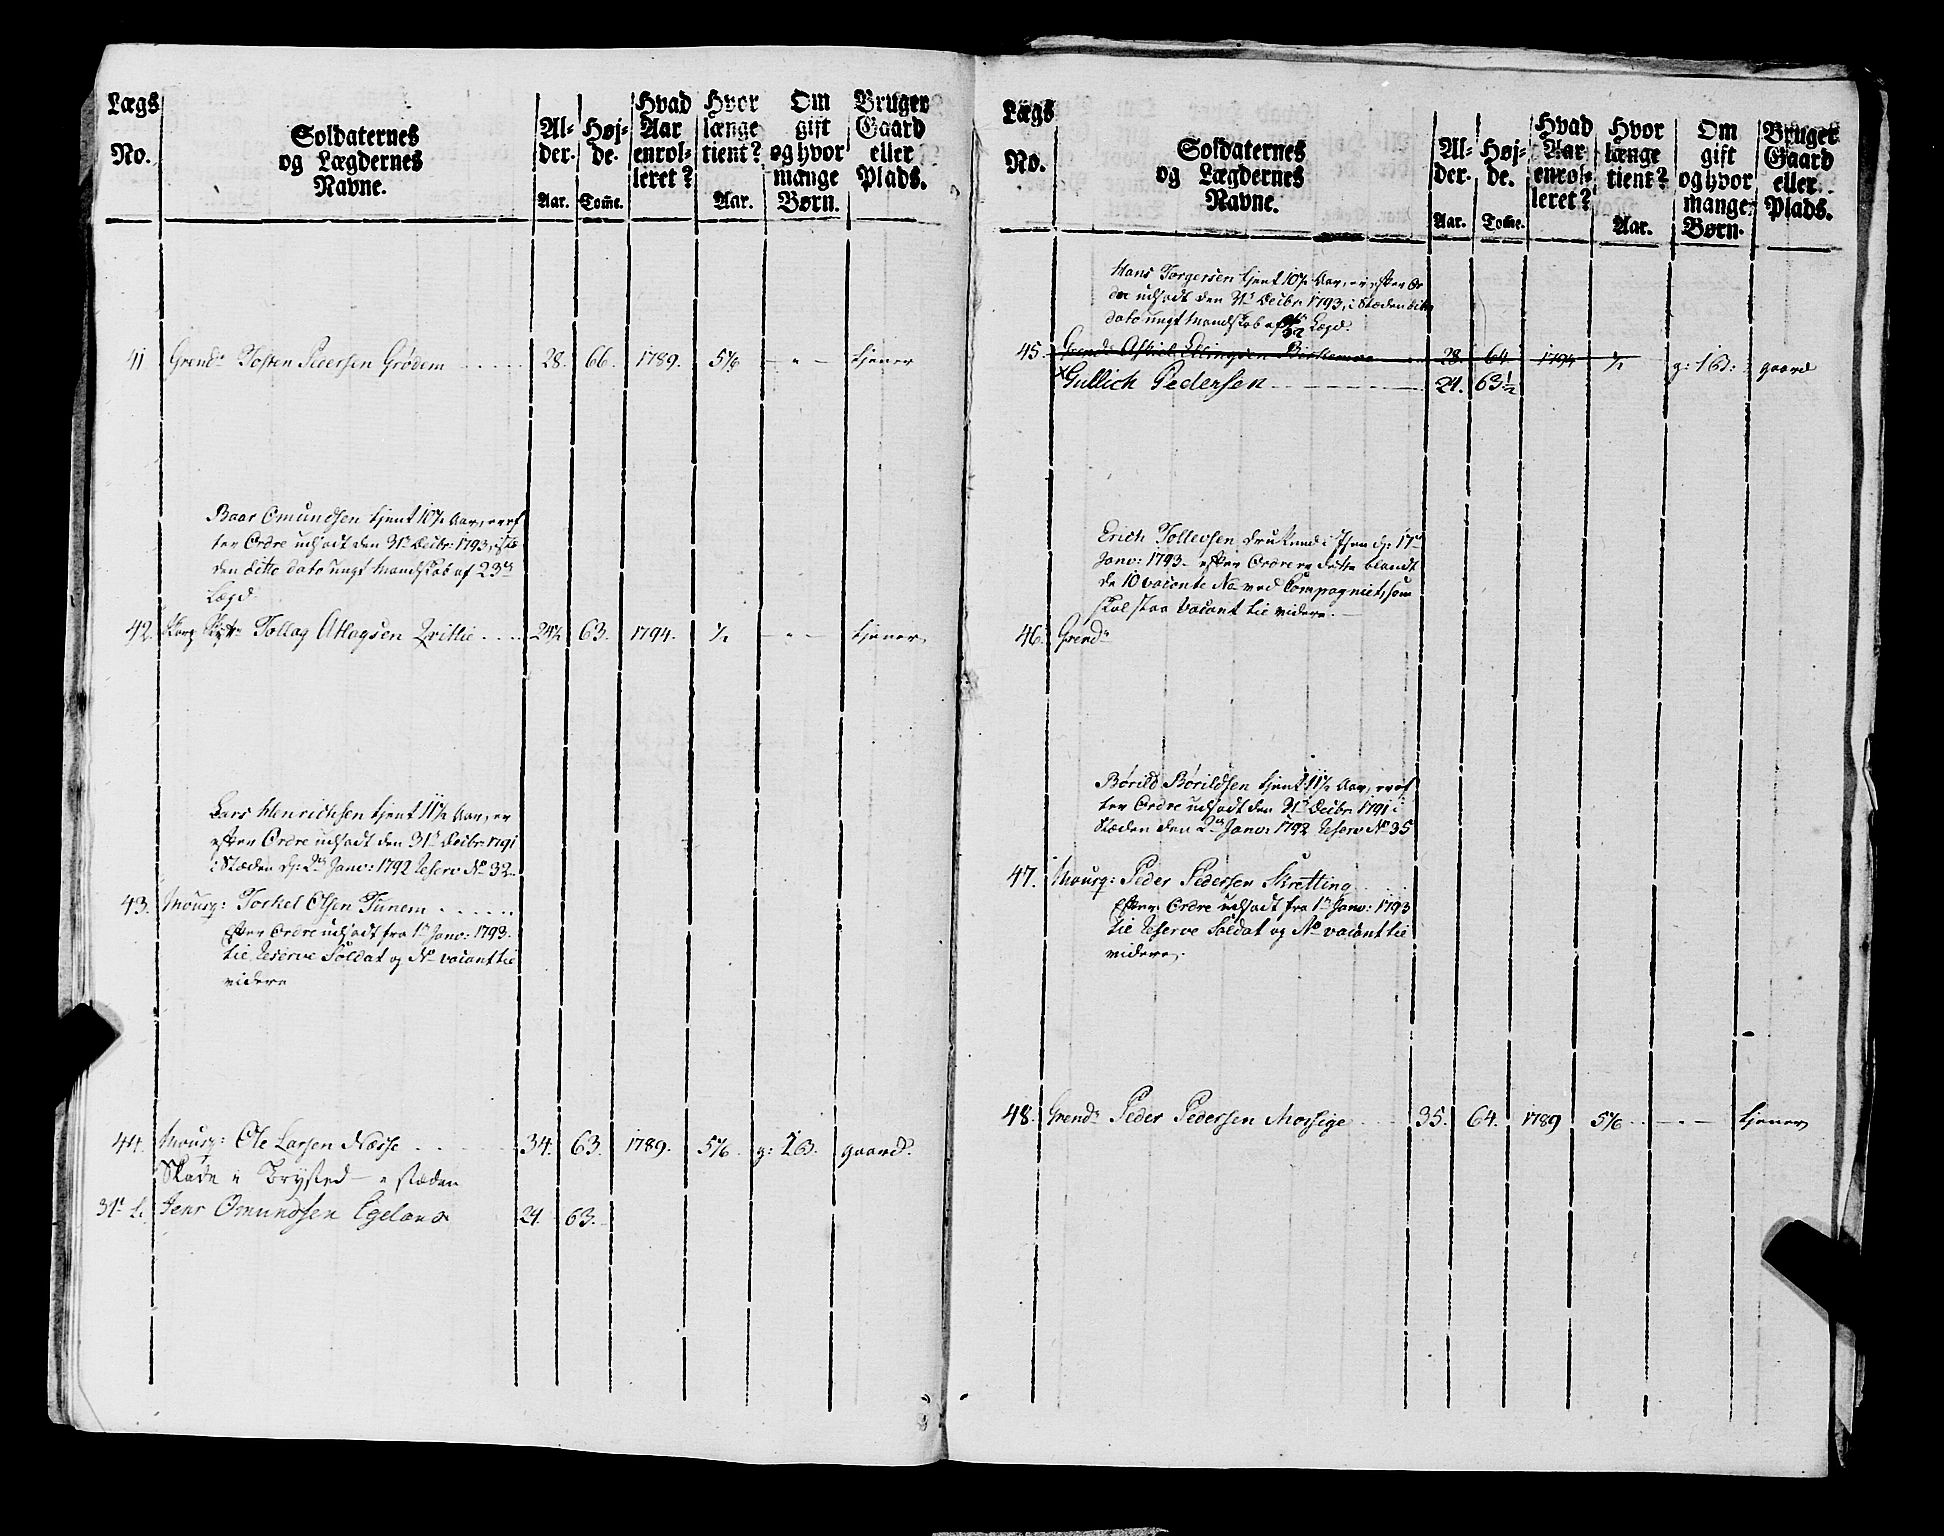 Lægs No. Soldaternes og Lægdernes Navne. Al- der. Aar. Høj- de. Tom̅e. Hvad Aar enrol- leret? Hvor længe tient? Aar. Om gift og hvor mange Børn. Bruger Gaard eller Plads.
41 Grendr Tosten Pedersen Grødem 28. 66. 1789. 5 1/6 - " - tjener
Baar Omundsen tjent 10 1/2 Aar, er ef
ter Ordre udsadt den 31te Decbr: 1793, i stæ
den ditto dato ungt Mandskab af 23de
Lægd.
42. Tollag Atlagsen 24 1/2 63. 1794. 1/2 - " - tjener
Lars Henrichsen tjent 11 1/2 Aar, er
efter Ordre udsadt den 31te Decbr 1791
i Stæden d: 2den Janv: 1792 Reserv No 32.
43. Mousq: Torkel Olsen Tunem
Efter Ordre udsadt fra 1te Janv: 1793.
til Reserve Soldat og No vacant til
videre
44. Mousq: Ole Larsen Næsse 34. 63. 1789. 5 1/6 g: 1 B. gaard.
Skade i Brysted - i stæden
31te L. Jens Omundsen Egeland 24. 63.
Lægs No. Soldaternes og Lægdernes Navne. Al- der. Aar. Høj- de. Tom̅e. Hvad Aar enrol- leret? Hvor længe tient? Aar. Om gift og hvor mange Børn. Bruger Gaard eller Plads.
Hans Torgersen tjent 10 1/2 Aar, er efter Or
dre udsadt den 31te Decbr 1793, i Stæden ditto
dato ungt Mandskab af Lægd.
45. Grendr Aslach Ellingsen 28. 64. 1794 1/2 g: 1 B: gaard
Gullich Pedersen 24. 63 1/2
Erich Tollevsen druknede i Søen d: 17de
Janv: 1793 - efter Ordre er dette blandt
de 10 vacante No ved Compagniet, som
skal staa vacant til videre.
46. Grendr
Børild Børildsen tjent 11 1/2 Aar, er ef
ter Ordre udsadt den 31te Decbr 1791 i
Stæden den 2den Janv: 1792 Reserv No 35
47. Mousq: Peder Pedersen Skretting
Efter Ordre udsadt fra 1te Janv: 1793
til Reserve Soldat og No vacant til
videre.
48. Grendr Peder Pedersen Mossige 35. 64. 1789 5 1/6 - " - tjener